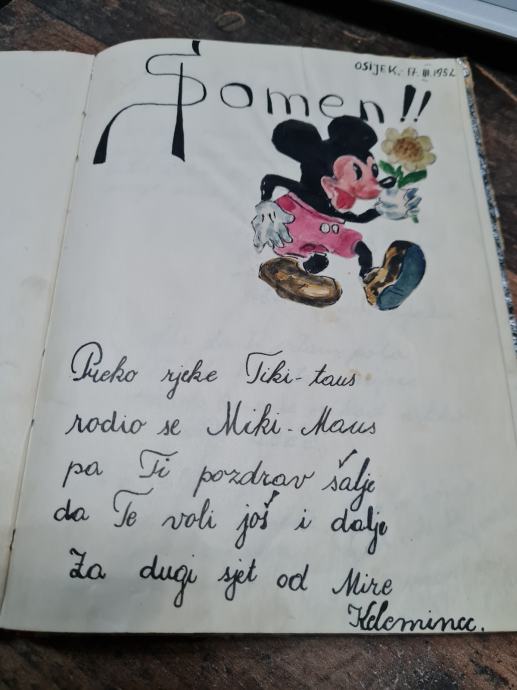 OSIJEK. 17. III. 1952
Spomen!!
Preko rjeke Tiki-taus
rodio se Miki-Maus
pa Ti pozdrav šalje
da Te voli još i dalje
Za dugi sjet od Mire